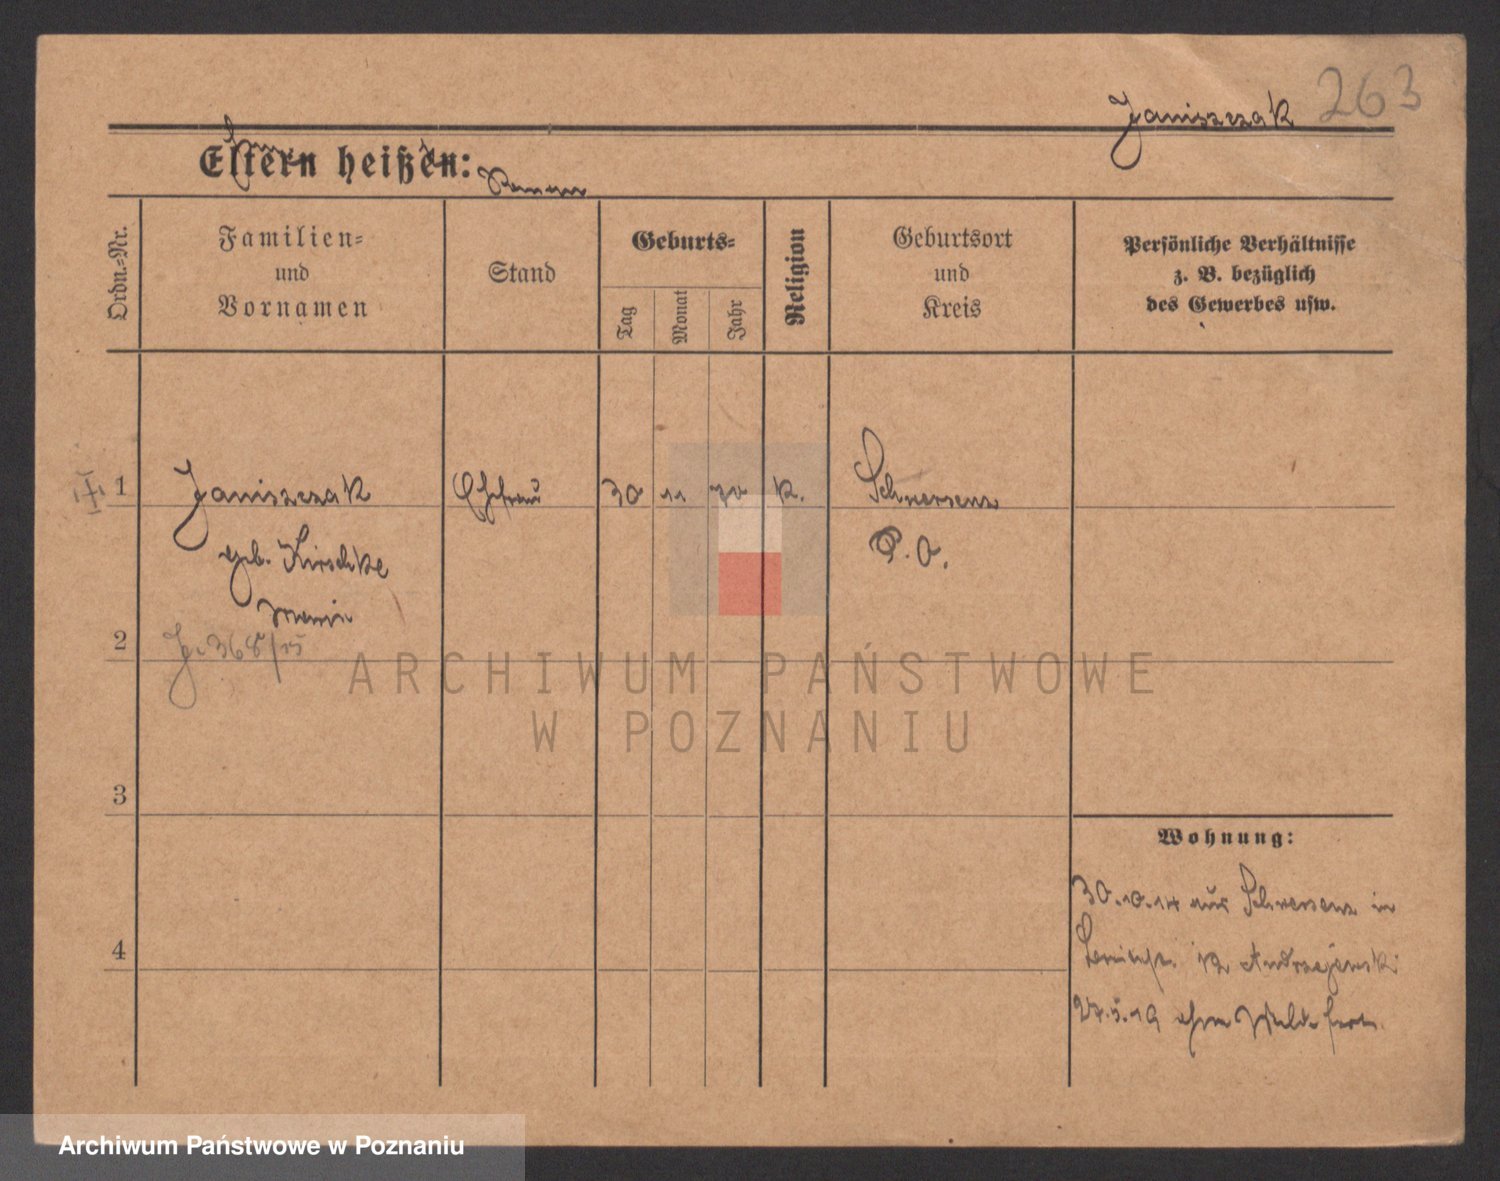 Janiszczak 263
Eltern heißen:
Ordn.-Nr.
Familien-
und
Vornamen
Stand
Geburts-
Tag
Monat
Jahr
Religion
Geburtsort
und
Kreis
Persönliche Verhältnisse
z. B. bezüglich
des Gewerbes usw.
1 Janiszczak Ehefrau 30 11 70 K. Schwersenz
geb. Kirschke P. O.
Maria
2 J. 368/15
3
Wohnung:
30.10.14 aus Schwersenz in
4 12 Andrzejewski
27.5.19 ohne Meld. fort.
ARCHIWUM PAŃSTWOWE
W POZNANIU
Archiwum Państwowe w Poznaniu